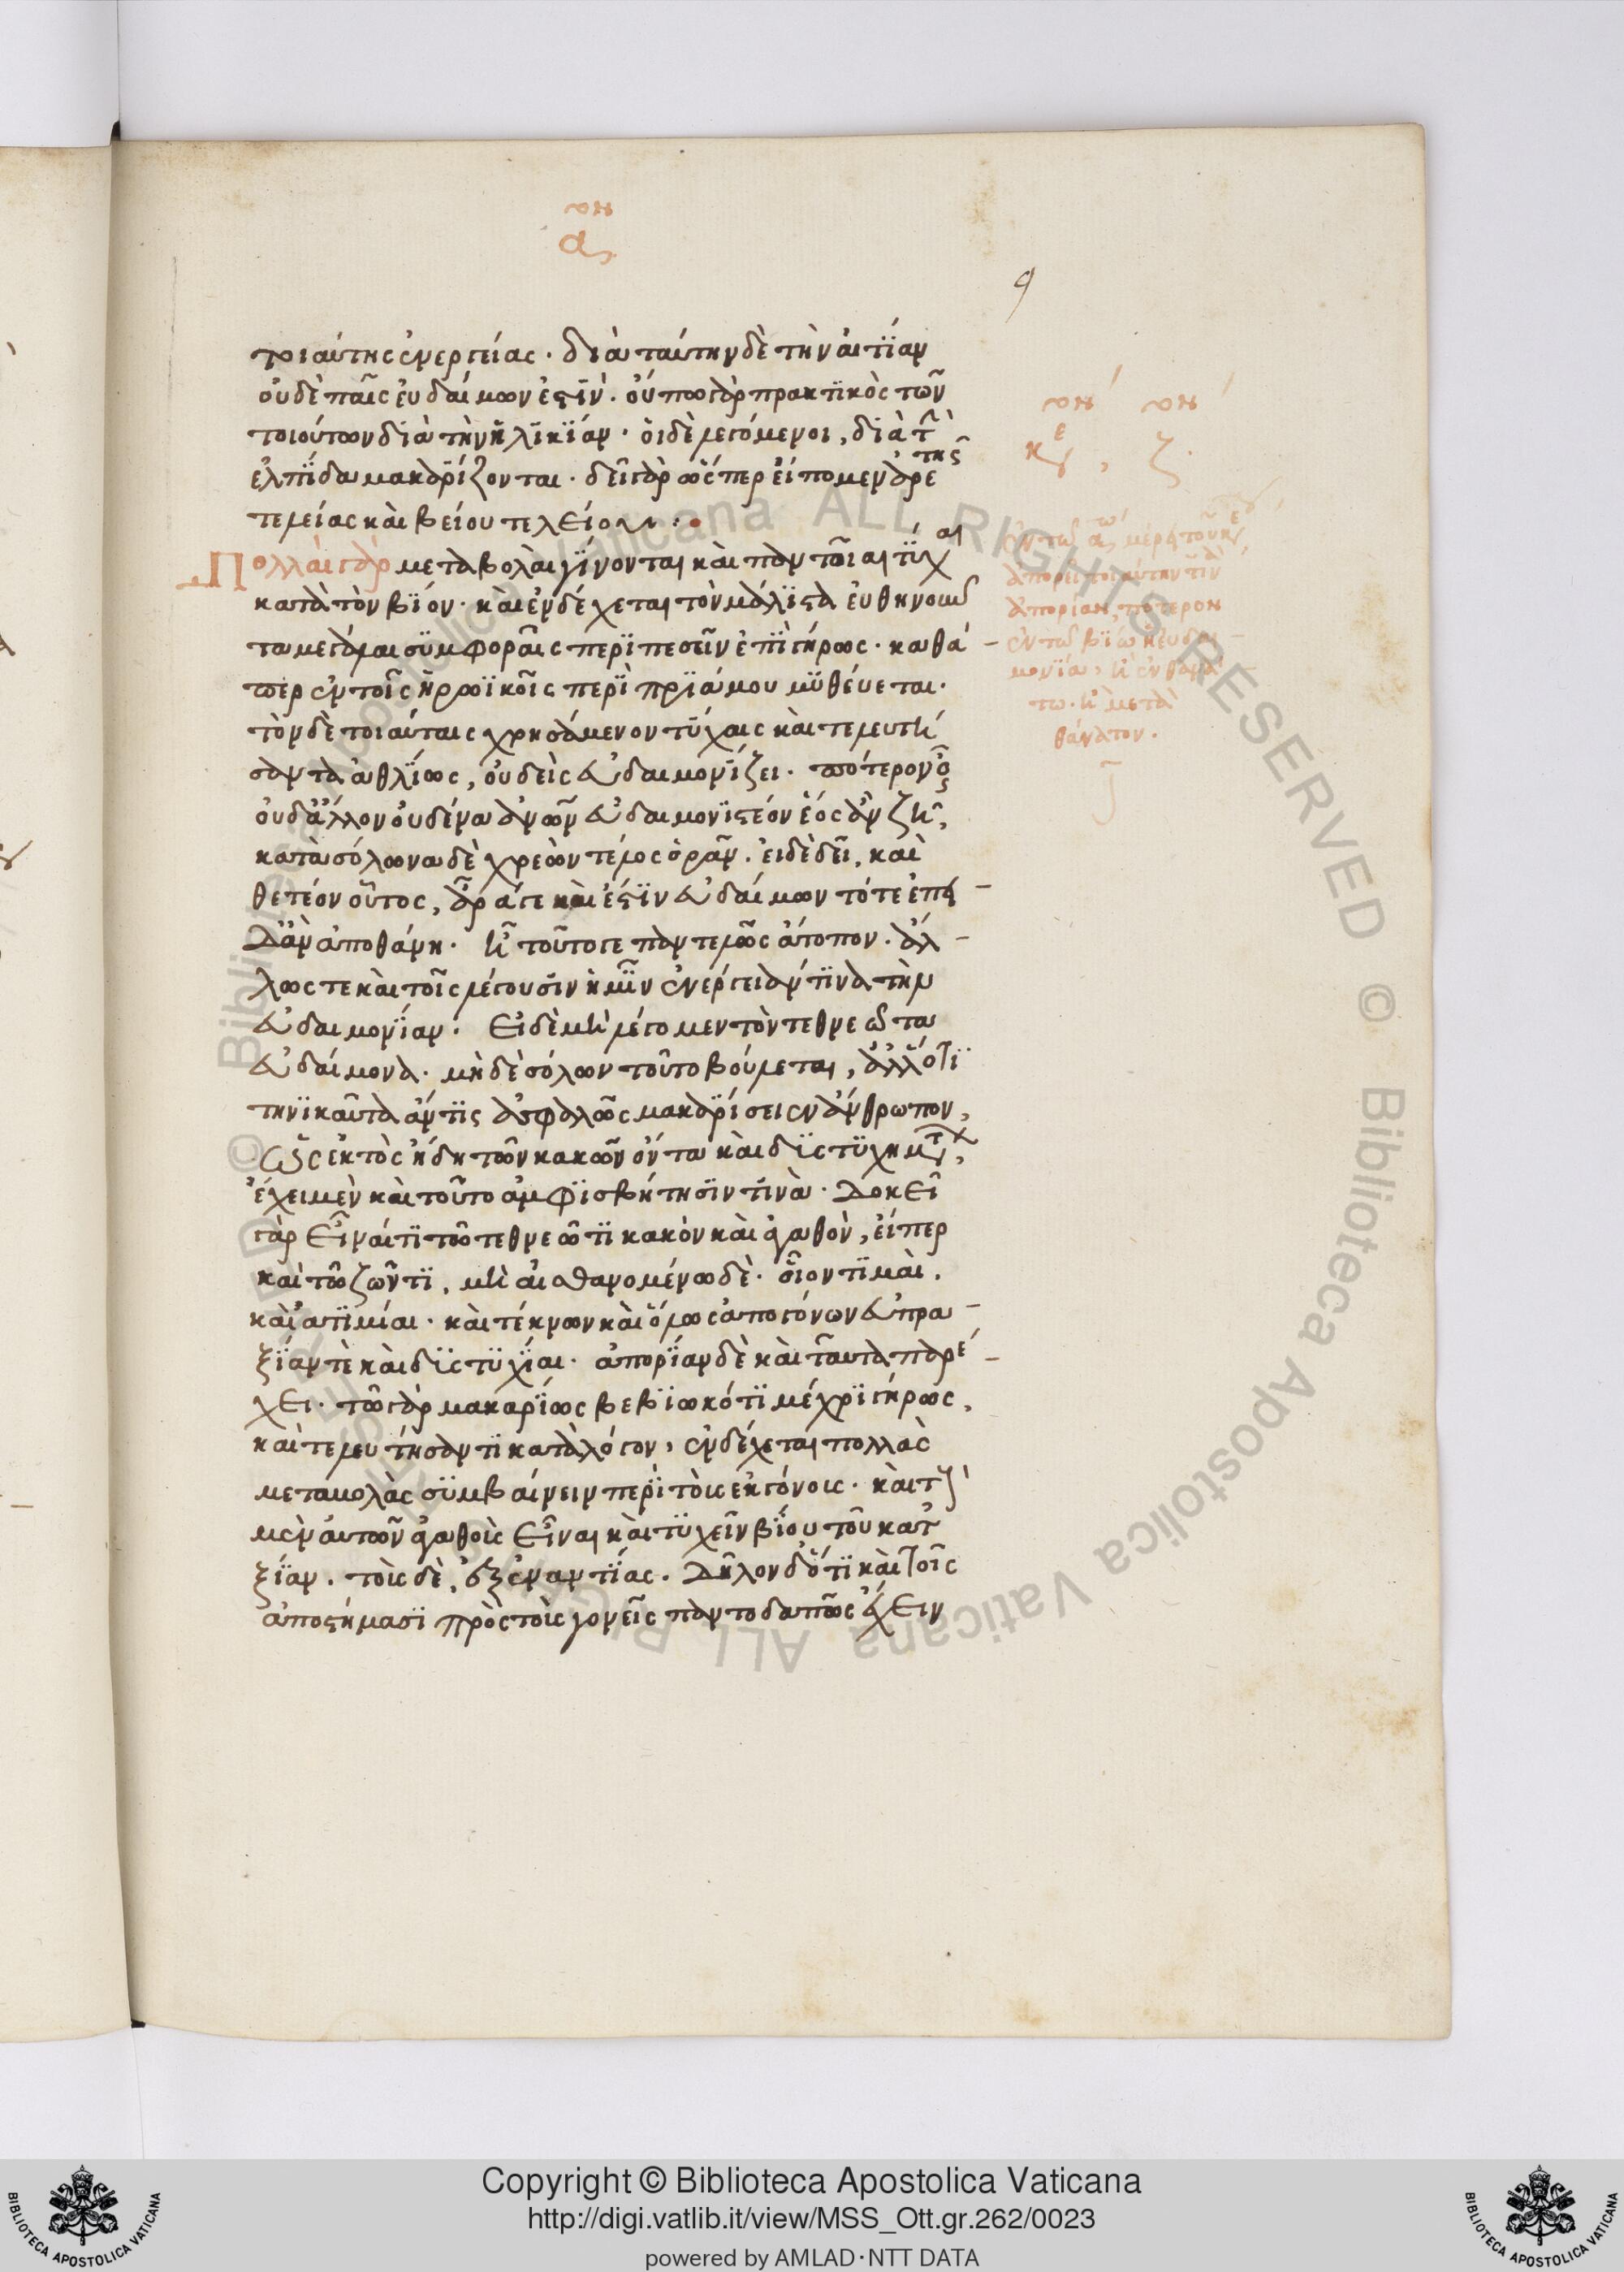 ον
α,
9
τοιαύτης ἐνεργείας. διὰ ταύτην δὲ τὴν αἰτϊαν
οὐδὲ παῖς εὐδαίμων ἐστίν. οὔπω γὰρ πρακτϊκὸς τῶν
τοιούτων διὰ τὴν ἡλικϊαν. οἱ δὲ λεγόμενοι, διὰ τὴν
ἐλπϊδα μακαρίζονται. δεῖ γὰρ ὥσπερ εἴπομεν ἀρετῆς
τελείας καὶ βείου τελείου.
Πολλαὶ γὰρ μεταβολαὶ γίνονται καὶ παντοῖαι τύχαι
κατὰ τὸν βίον. καὶ ἐνδέχεται τὸν μάλϊστα εὐθηνοῦν
τα μεγάλαι συμφοραῖς περϊπεσεῖν ἐπὶ γήρως. καθά-
περ ἐν τοῖς ἡρωϊκοῖς περὶ πρϊάμου μϋθεύεται.
τὸν δὲ τοιαύταις χρησάμενον τύχαις καὶ τελευτή
σαντα ἀθλίως, οὐδεὶς εὐδαιμονίζει. πότερον οὖν
οὐδ' ἄλλον οὐδένα ἀνθρώπων εὐδαιμονϊστέον ἕως ἂν ζῇ,
κατὰ σόλωνα δὲ χρεὼν τέλος ὁρᾶν. εἰ δὲ δεῖ, καὶ
θετέον οὕτος, ἆρά γε καὶ ἔστϊν εὐδαίμων τότε ἐπει-
δὰν ἀποθάνη. ἢ τοῦτο γε παντελῶς ἄτοπον. ἄλ-
λως τε καὶ τοῖς λέγουσϊν ἡμῖν ἐνέργειαν τϊνὰ τὴν
εὐδαιμονϊαν. Εἰ δὲ μὴ λέγομεν τὸν τεθνεῶτα
εὐδαίμονα. μηδὲ σόλων τοῦτο βούλεται, ἀλλ' ὅτι
τηνϊκαῦτα ἄν τϊς ἀσφαλῶς μακαρϊσειεν ἄνθρωπον,
ὡς ἐκτὸς ἤδη τῶν κακῶν ὄντα καὶ δϊςτϋχημάτων,
ἔχει μὲν καὶ τοῦτο ἀμφϊσβήτησϊν τϊνὰ. Δοκεῖ
γὰρ εἶναί τϊ τῶ τεθνεῶτϊ κακὸν καὶ ἀγαθὸν, εἴπερ
καὶ τῶ ζῶντϊ, μὴ αἰσθανομένω δὲ. οἷον τϊμαὶ.
καὶ ἀτϊμίαι. καὶ τέκνων καὶ ὅλως ἀπογόνων εὐπρα-
ξϊαν τὲ καὶ δϊςτϋχϊαι. ἀπορϊαν δὲ καὶ ταῦτα παρέ-
χει. τῶ γὰρ μακαρϊως βεβϊωκότϊ μέχρϊ γήρως,
καὶ τελευτήσαντϊ κατὰ λόγον, ἐνδέχεται πολλὰς
μεταβολὰς σϋμβαίνειν περὶ τοὺς ἐκγόνους. καὶ τοὺς
μὲν αὐτῶν ἀγαθοὺς εἶναι καὶ τϋχεῖν βίου τοῦ κατ' ἀ
ξϊαν. τοὺς δὲ, ἐξ ἐναντϊας. Δῆλον δ' ὅτϊ καὶ τοῖς
ἀποστήμασϊ πρὸς τοὺς γονεῖς παντοδαπῶς ἔχειν
ον ον
κε, ζ.
ἐν τῶ αω μέρει τοῦ κε
ἀπορεῖ τοιαύτην τινὰ
ἀπορίαν, πότερον
ἐν τῶ βϊω ἡ εὐδαι-
μονϊα, ἢ ἐν θανά-
τω. ἢ μετὰ
θάνατον.
Copyright © Biblioteca Apostolica Vaticana
http://digi.vatlib.it/view/MSS_Ott.gr.262/0023
powered by AMLAD·NTT DATA
BIBLIOTECA APOSTOLICA VATICANA
BIBLIOTECA APOSTOLICA VATICANA
© Biblioteca Apostolica Vaticana ALL RIGHTS RESERVED © Biblioteca Apostolica Vaticana ALL RIGHTS RESERVED